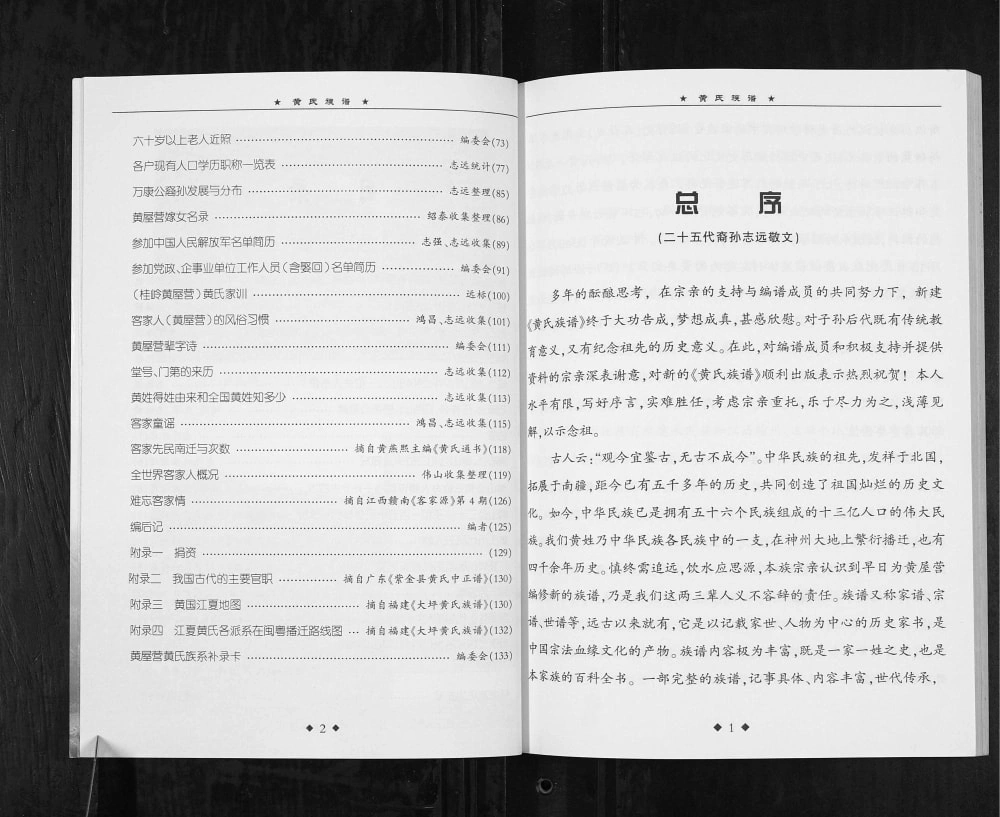 ★ 黄氏族谱 ★
六十岁以上老人近照 编委会(73)
各户现有人口学历职称一览表 志远统计(77)
万康公裔孙发展与分布 志远整理(85)
黄屋营嫁女名录 绍泰收集整理(86)
参加中国人民解放军名单简历 志强、志远收集(89)
参加党政、企事业单位工作人员(含娶回)名单简历 编委会(91)
(桂岭黄屋营)黄氏家训 远标(100)
客家人(黄屋营)的风俗习惯 鸿昌、志远收集(101)
黄屋营辈字诗 编委会(111)
堂号、门第的来历 志远收集(112)
黄姓得姓由来和全国黄姓知多少 志远收集(113)
客家童谣 鸿昌、志远收集(115)
客家先民南迁与次数 摘自黄燕熙主编《黄氏通书》(118)
全世界客家人概况 伟山收集整理(119)
难忘客家情 摘自江西赣南《客家源》第4期(126)
编后记 编者(125)
附录一 捐资 (129)
附录二 我国古代的主要官职 摘自广东《紫金县黄氏中正谱》(130)
附录三 黄国江夏地图 摘自福建《大坪黄氏族谱》(130)
附录四 江夏黄氏各派系在闽粤播迁路线图 摘自福建《大坪黄氏族谱》(132)
黄屋营黄氏族系补录卡 编委会(133)
◆ 2 ◆
★ 黄氏族谱 ★
总 序
(二十五代裔孙志远敬文)
多年的酝酿思考，在宗亲的支持与编谱成员的共同努力下，新建
《黄氏族谱》终于大功告成，梦想成真，甚感欣慰。对子孙后代既有传统教
育意义，又有纪念祖先的历史意义。在此，对编谱成员和积极支持并提供
资料的宗亲深表谢意，对新的《黄氏族谱》顺利出版表示热烈祝贺！本人
水平有限，写好序言，实难胜任，考虑宗亲重托，乐于尽力为之，浅薄见
解，以示念祖。
古人云：“观今宜鉴古，无古不成今”。中华民族的祖先，发祥于北国，
拓展于南疆，距今已有五千多年的历史，共同创造了祖国灿烂的历史文
化。如今，中华民族已是拥有五十六个民族组成的十三亿人口的伟大民
族。我们黄姓乃中华民族各民族中的一支，在神州大地上繁衍播迁，也有
四千余年历史。慎终需追远，饮水应思源，本族宗亲认识到早日为黄屋营
编修新的族谱，乃是我们这两三辈人义不容辞的责任。族谱又称家谱、宗
谱、世谱等，远古以来就有，它是以记载家世、人物为中心的历史家书，是
中国宗法血缘文化的产物。族谱内容极为丰富，既是一家一姓之史，也是
本家族的百科全书。一部完整的族谱，记事具体、内容丰富，世代传承，
◆ 1 ◆